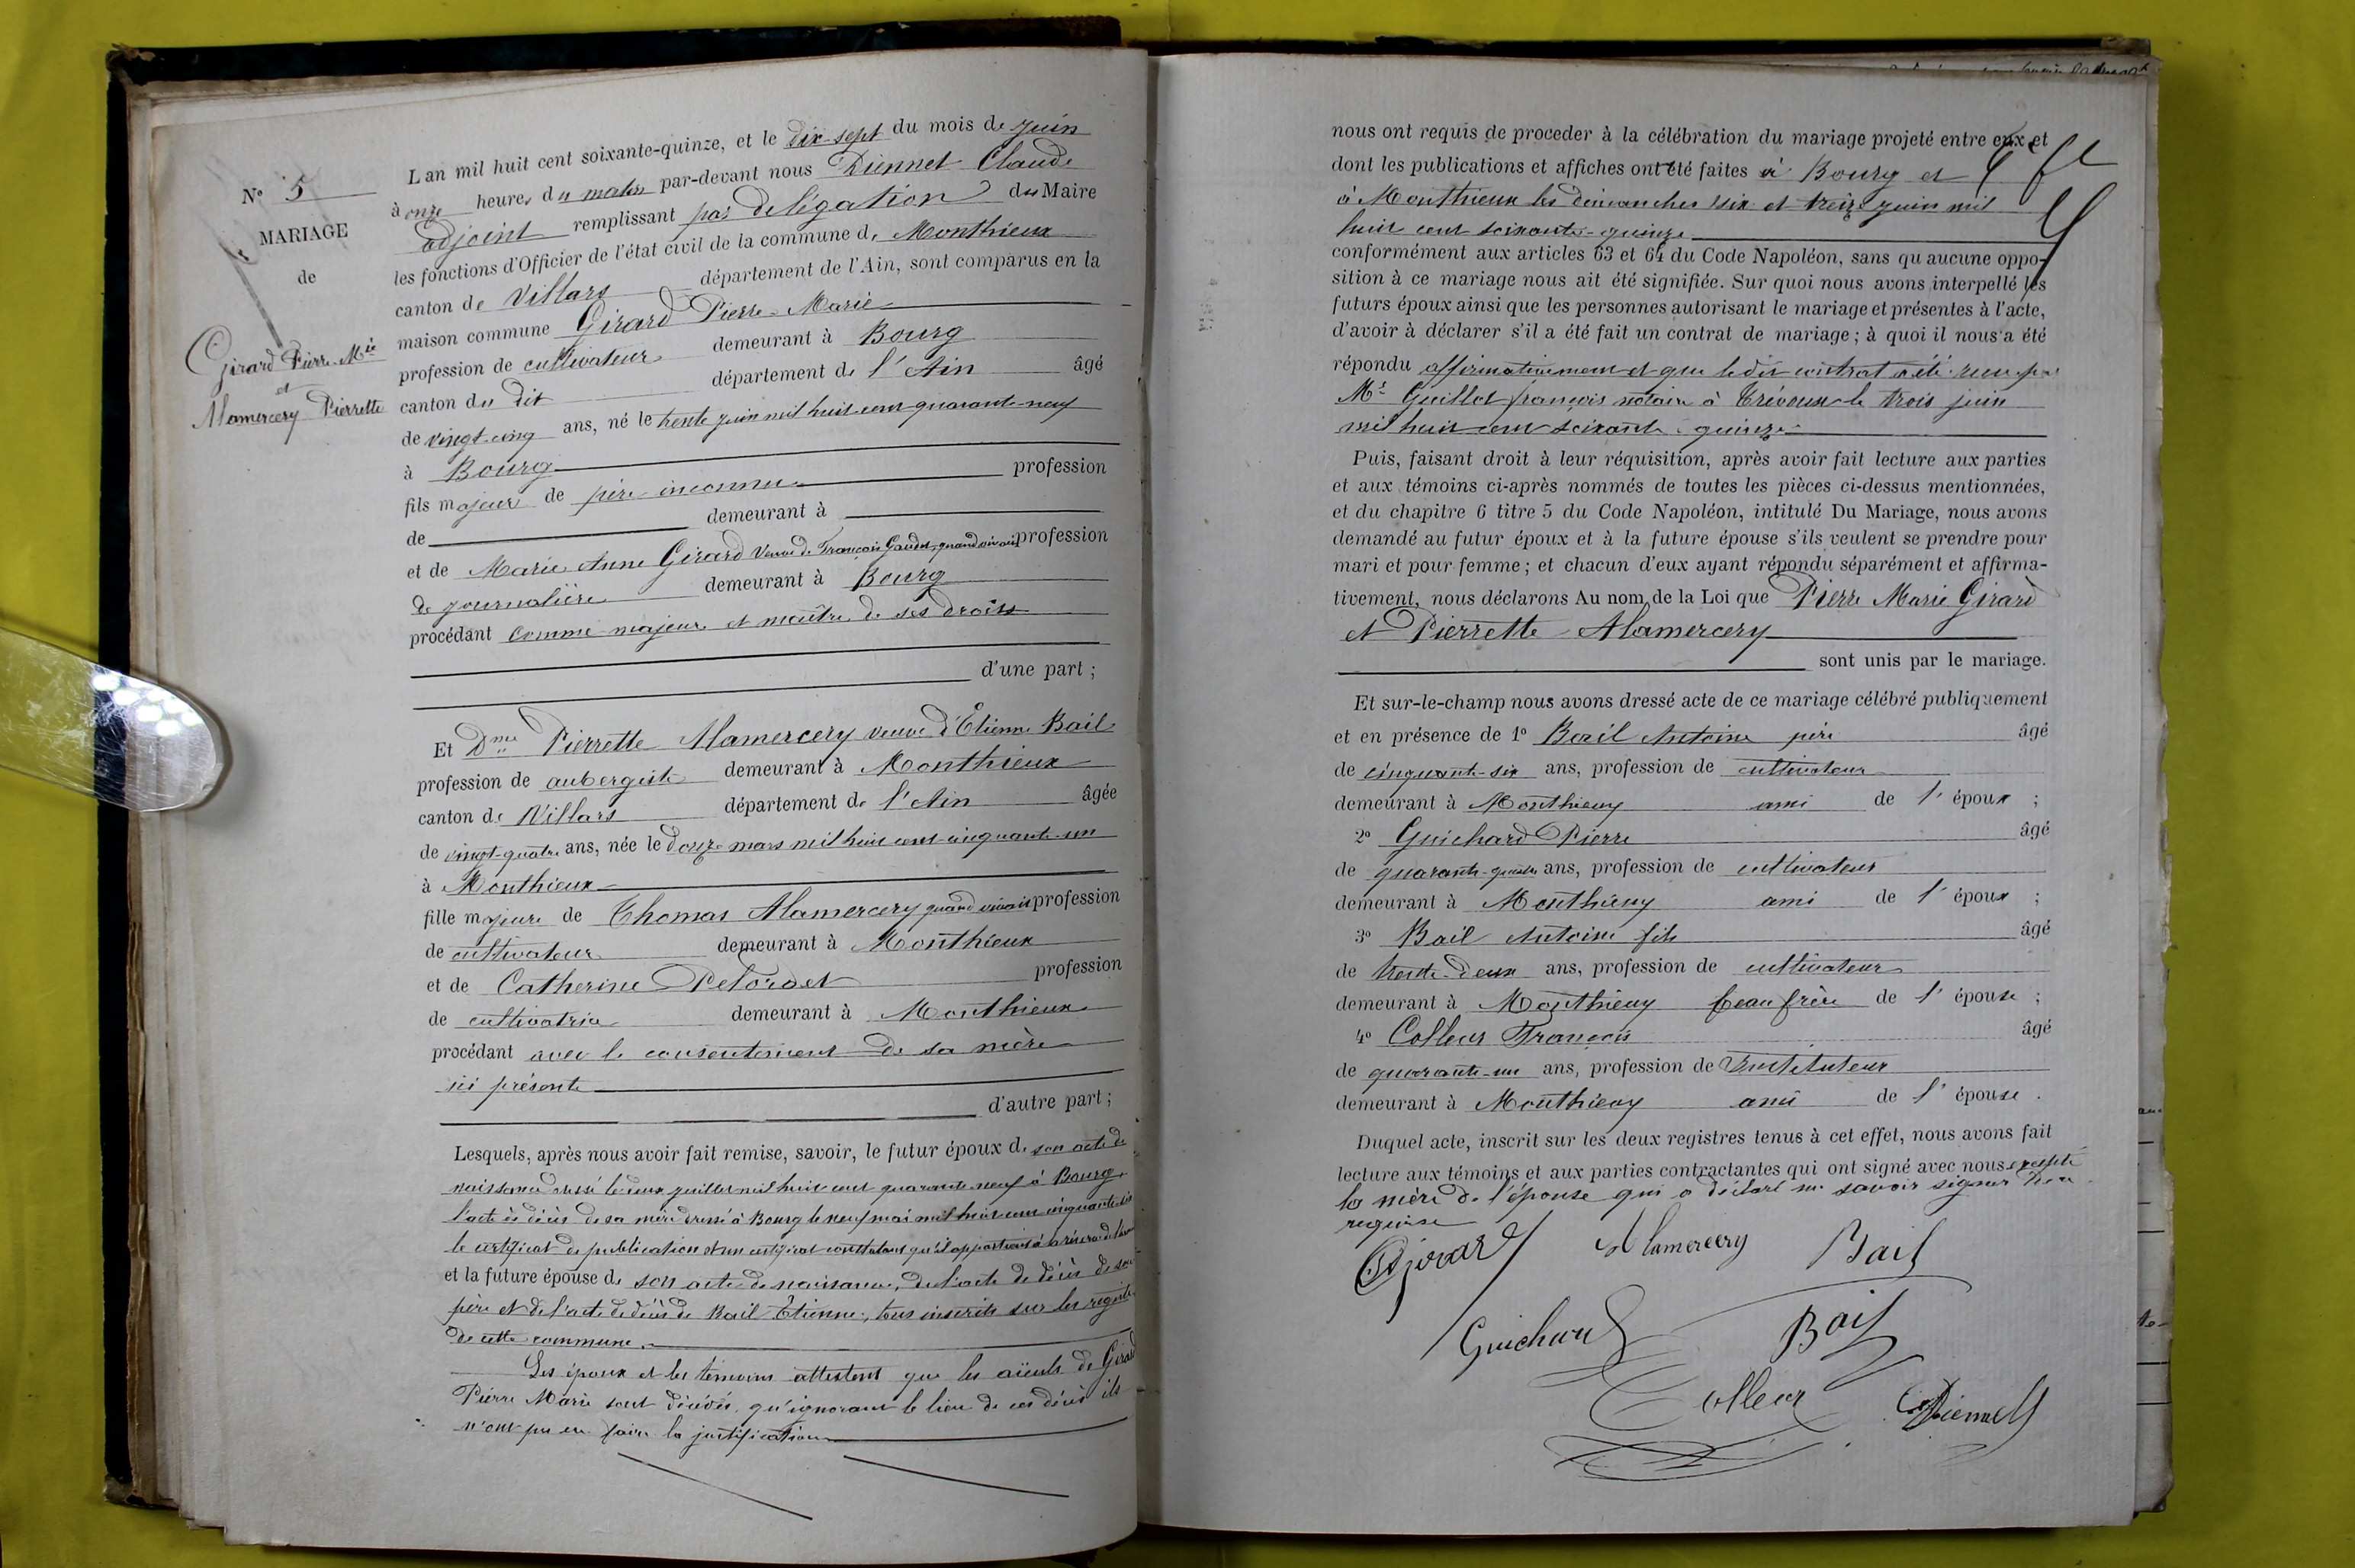 N° 5
MARIAGE
de
Girard Pierre Mie
et
Alamercery Pierrette
L'an mil huit cent soixante-quinze, et le dix-sept du mois de juin
à onze heures du matin par-devant nous Diennet Claude
adjoint remplissant par délégation du Maire
les fonctions d'Officier de l'état civil de la commune de Monthieux
canton de Villars département de l'Ain, sont comparus en la
maison commune Girard Pierre-Marie
profession de cultivateur demeurant à Bourg
canton du dit département de l'Ain âgé
de vingt-cinq ans, né le trente juin mil huit cent quarante-neuf
à Bourg
fils majeur de père inconnu profession
de demeurant à
et de Marie Anne Girard veuve de François Gaudet, quand vivait profession
de journalière demeurant à Bourg
procédant comme majeur et maître de ses droits
d'une part ;
Et Dme Pierrette Alamercery veuve d'Etienne Bail
profession de aubergiste demeurant à Monthieux
canton de Villars département de l'Ain âgée
de vingt-quatre ans, née le douze mars mil huit cent cinquante-un
à Monthieux
fille majeure de Thomas Alamercery quand vivait profession
de cultivateur demeurant à Monthieux
et de Catherine profession
de cultivatrice demeurant à Monthieux
procédant avec le consentement de sa mère
ici présente
d'autre part ;
Lesquels, après nous avoir fait remise, savoir, le futur époux de son acte de
naissance dressé le deux juillet mil huit cent quarante-neuf à Bourg,
l'acte de décès de sa mère dressé à Bourg le neuf mai mil huit cent cinquante-six
le certificat de publication et un certificat constatant qu'il appartient à la réserve de
et la future épouse de son acte de naissance, de l'acte de décès de son
père et de l'acte de décès de Bail Etienne, tous inscrits sur les registres
de cette commune.
Les époux et les témoins attestent que les aïeuls de Girard
Pierre Marie sont décédés, qu'ignorant le lieu de ces décès ils
n'ont pu en faire la justification
nous ont requis de proceder à la célébration du mariage projeté entre eux et
dont les publications et affiches ont été faites à Bourg et
à Monthieux les dimanches six et treize juin mil
huit cent soixante-quinze
conformément aux articles 63 et 64 du Code Napoléon, sans qu aucune oppo-
sition à ce mariage nous ait été signifiée. Sur quoi nous avons interpellé les
futurs époux ainsi que les personnes autorisant le mariage et présentes à l'acte,
d'avoir à déclarer s'il a été fait un contrat de mariage ; à quoi il nous a été
répondu affirmativement et que ledit contrat a été reçu par
Me Guillot françois notaire à Trévoux le trois juin
mil huit cent soixante-quinze
Puis, faisant droit à leur réquisition, après avoir fait lecture aux parties
et aux témoins ci-après nommés de toutes les pièces ci-dessus mentionnées,
et du chapitre 6 titre 5 du Code Napoléon, intitulé Du Mariage, nous avons
demandé au futur époux et à la future épouse s'ils veulent se prendre pour
mari et pour femme ; et chacun d'eux ayant répondu séparément et affirma-
tivement, nous déclarons Au nom de la Loi que Pierre Marie Girard
et Pierrette Alamercery
sont unis par le mariage.
Et sur-le-champ nous avons dressé acte de ce mariage célébré publiquement
et en présence de 1° Bail Antoine père âgé
de cinquante-six ans, profession de cultivateur
demeurant à Monthieux ami de l'époux ;
2° Guichard Pierre âgé
de ans, profession de cultivateur
demeurant à Monthieux ami de l'époux ;
3° Bail Antoine fils âgé
de trente-deux ans, profession de cultivateur
demeurant à Monthieux beau frère de l'épouse ;
4° Colleur François âgé
de quarante-un ans, profession de Instituteur
demeurant à Monthieux ami de l'épouse.
Duquel acte, inscrit sur les deux registres tenus à cet effet, nous avons fait
lecture aux témoins et aux parties contractantes qui ont signé avec nous excepté
la mère de l'épouse qui a déclaré ne savoir signer de ce
requise
Girard Alamercery Bail
Guichard Bail
Colleur Diennet